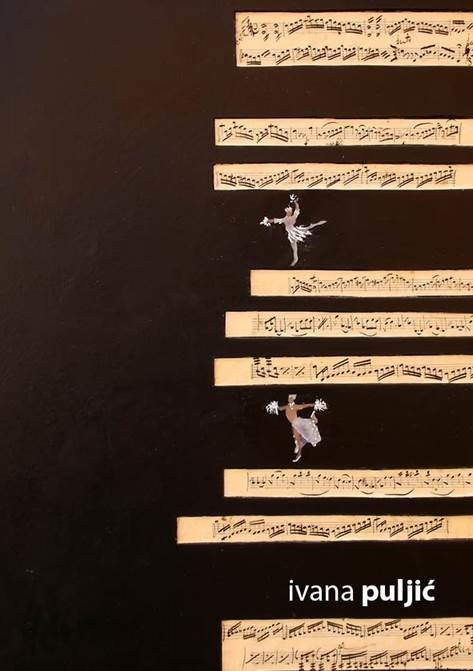 ivana puljić